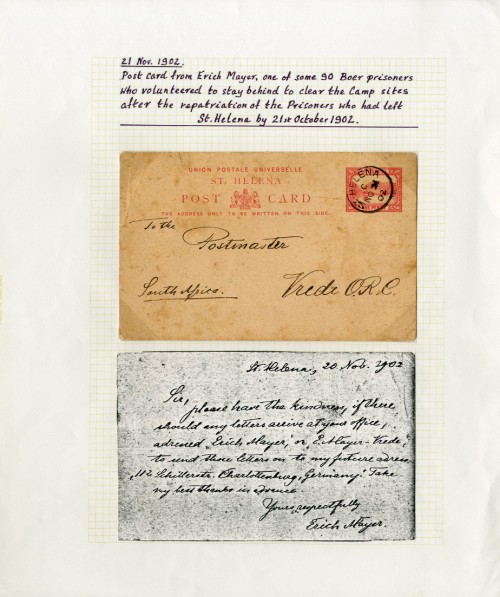 21 Nov. 1902.
Post card from Erich Mayer, one of some 90 Boer prisoners
who volunteered to stay behind to clear the Camp sites
after the repatriation of the Prisoners who had left
St. Helena by 21st October 1902.
UNION POSTALE UNIVERSELLE
ST. HELENA
POST CARD
THE ADDRESS ONLY TO BE WRITTEN ON THIS SIDE.
ST. HELENA
To the
Postmaster
South Africa.
Vrede O.R.C.
St. Helena, 20 Nob. 1902
Sir,
please have the kindness, if there
should any letters arrive at your office,
adressed "Erich Mayer," or "E. Mayer-Vrede,"
to send those letters on to my future adress
"112 Schillerstr. Charlottenburg, Germany." Take
my best thanks in advance.
Yours respectfully
Erich Mayer.